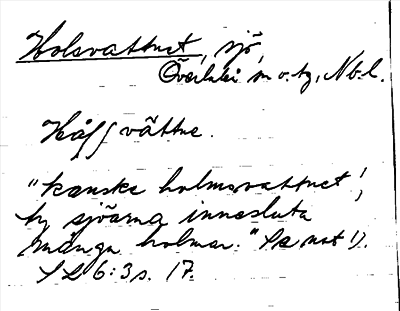 Holsvattnet, sjö,
Överluleå sn o. tg, Nb. l.
Hålsvättne.
"kanske holmsvattnet',
ty sjöarna innesluta
många holmar." (Se not 1).
SL 6: 3 s. 17.